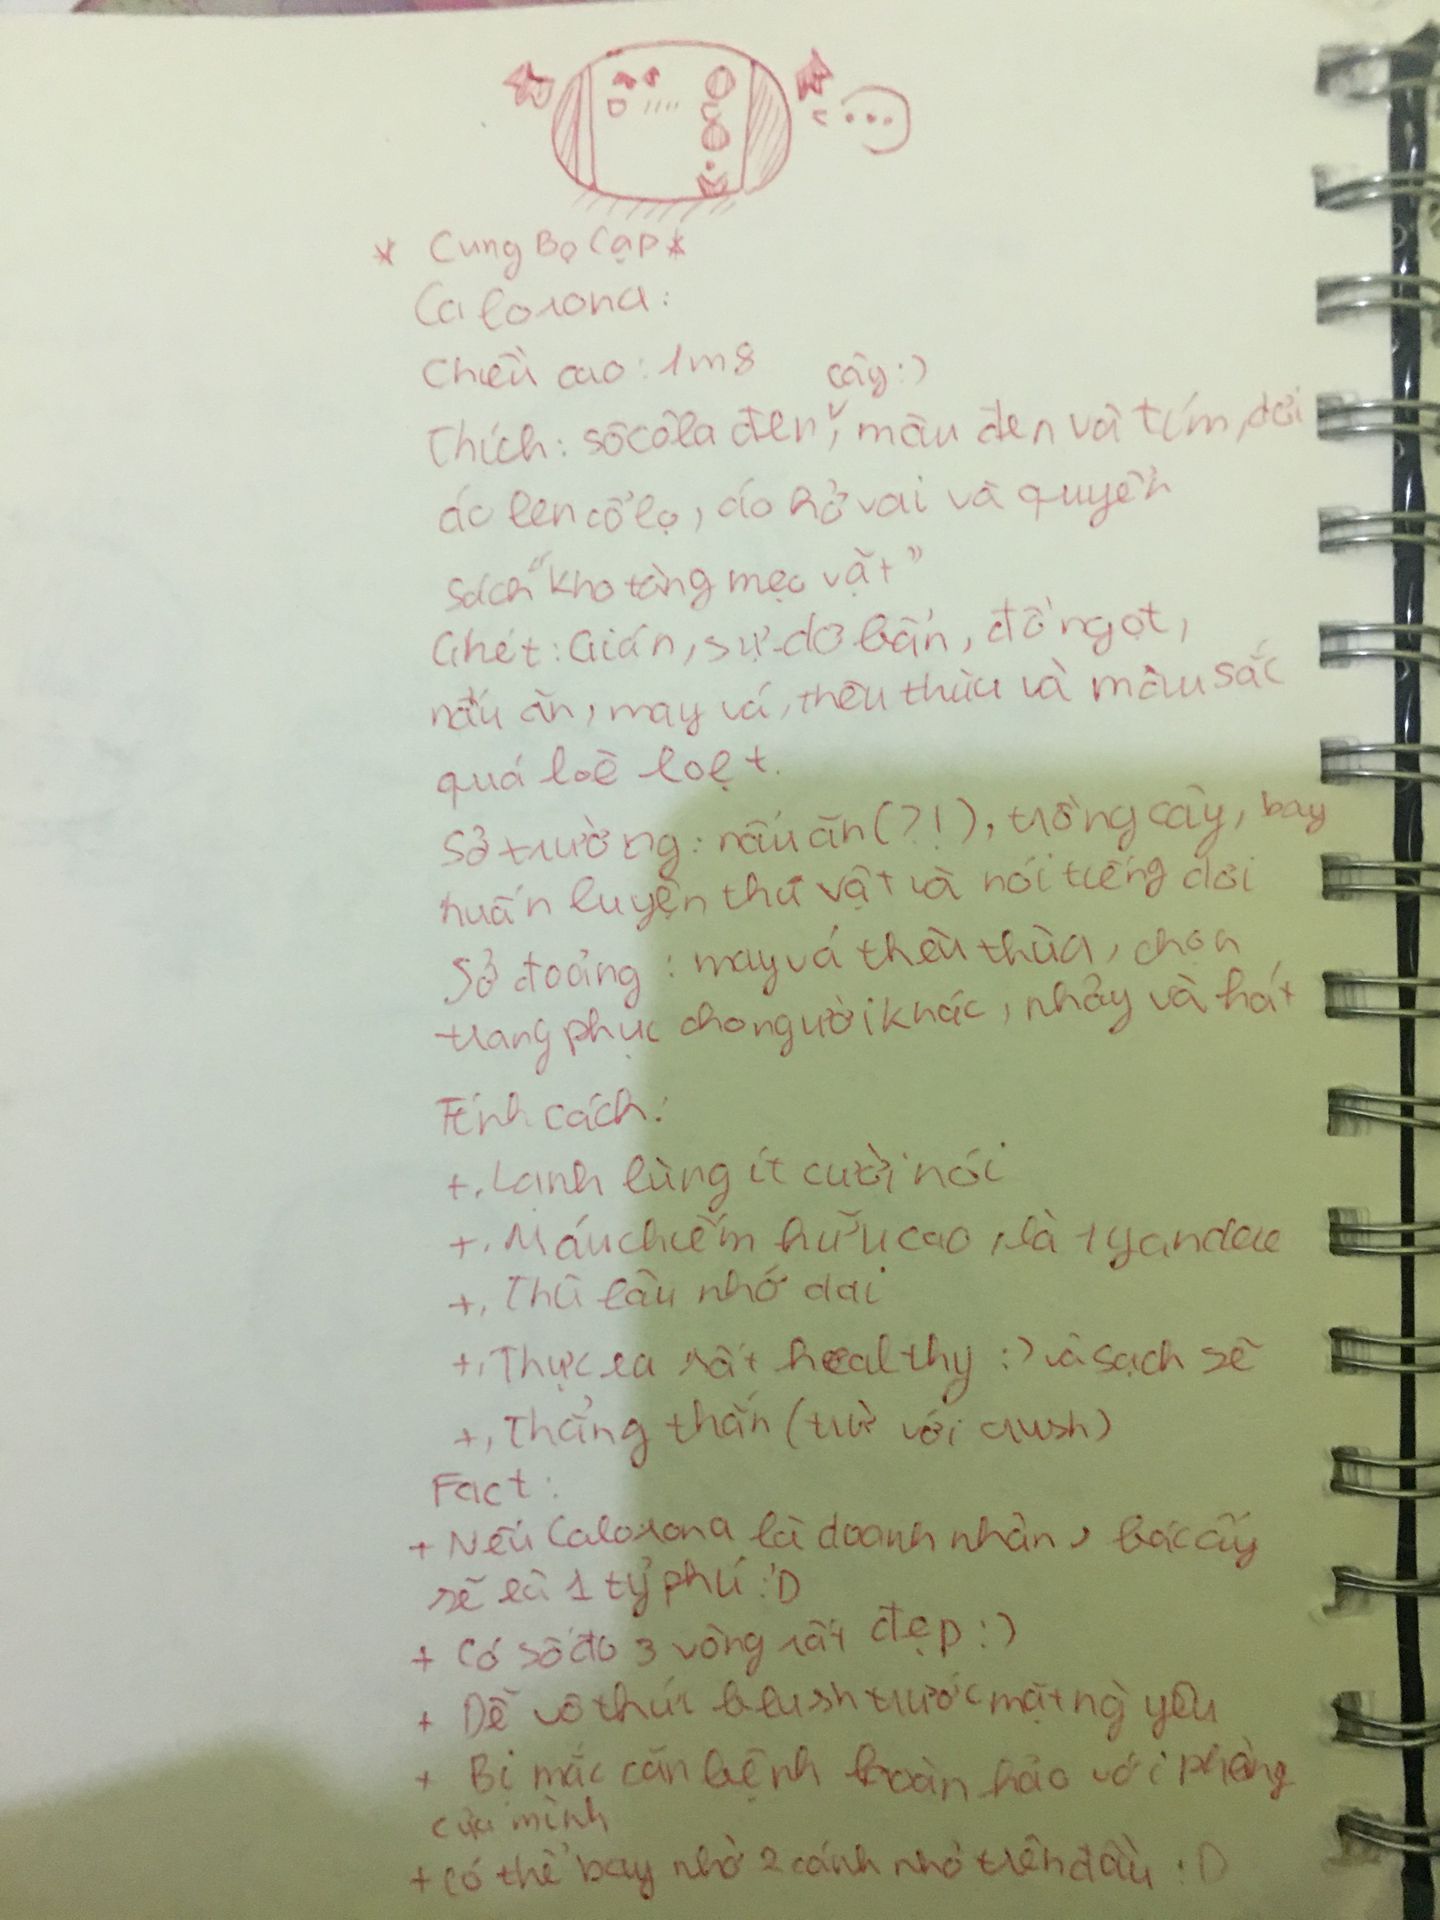 * Cung Bọ Cạp *
Calorona:
Chiều cao: 1m8
Thích: sôcôla đen, cây :) màu đen và tím, dơi
áo len cổ lọ, áo hở vai và quyển
sách "kho tàng mẹo vặt"
Ghét: Gián, sự dơ bẩn, đồ ngọt,
nấu ăn, may vá, thêu thùa và màu sắc
quá loè loẹt.
Sở trường: nấu ăn (?!), trồng cây, bay
huấn luyện thú vật và nói tiếng dơi
Sở đoảng: may vá thêu thùa, chọn
trang phục cho người khác, nhảy và hát
Tính cách:
+, Lạnh lùng ít cười nói
+, Máu chiếm hữu cao, là 1 yandere
+, Thù lâu nhớ dai
+, Thực ra rất healthy :) và sạch sẽ
+, Thẳng thắn (trừ với crush)
Fact:
+ Nếu Calorona là doanh nhân, bác ấy
sẽ là 1 tỷ phú :'D
+ Có số đo 3 vòng rất đẹp :)
+ Dễ vô thức blush trước mặt ng` yêu
+ Bị mắc căn bệnh hoàn hảo với phòng
của mình
+ Có thể bay nhờ 2 cánh nhỏ trên đầu :D